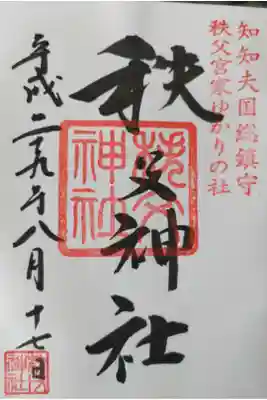 知知夫国総鎮守
秩父宮家ゆかりの社
秩父神社
秩父神社
平成二九年八月十七日